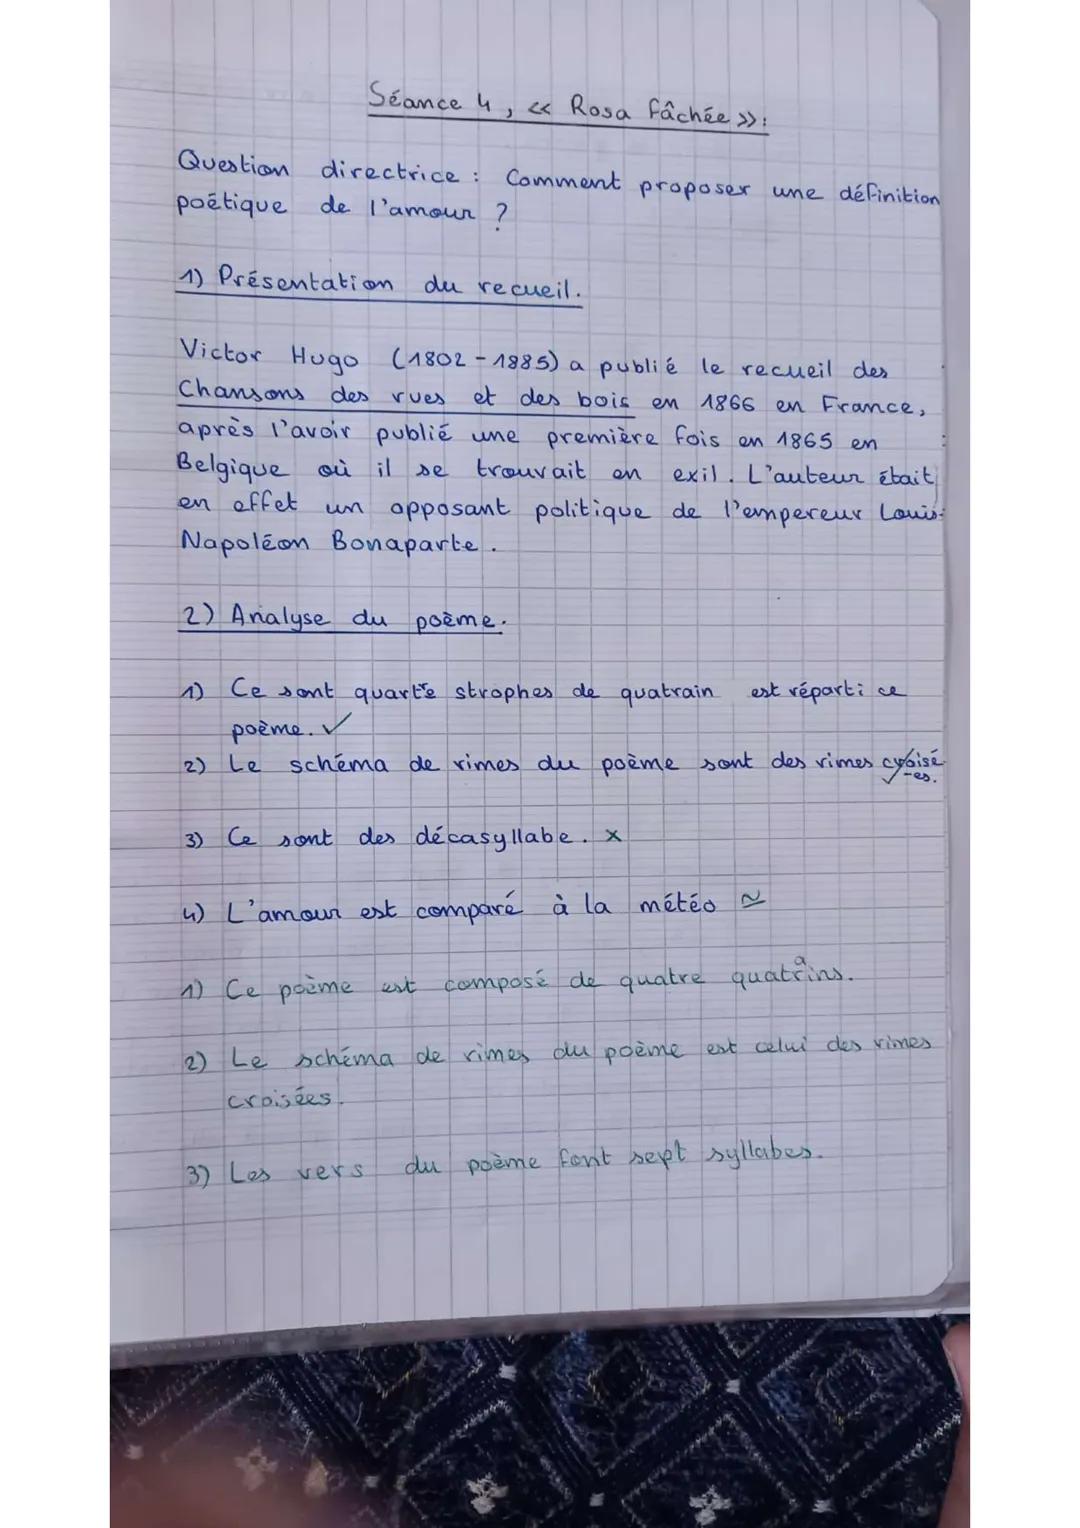 Séance 4, « Rosa fâchée »:
Question directrice : Comment proposer une définition
poétique de l'amour ?
1) Présentation du recueil.
Victor Hugo (1802-1885) a publié le recueil des
Chansons des rues et des bois en 1866 en France,
après l'avoir publié une première fois en 1865 en
Belgique où il se trouvait en exil. L'auteur était
en effet un opposant politique de l'empereur Louis-
Napoléon Bonaparte.
2) Analyse du poème.
1) Ce sont quartre strophes de quatrain est réparti ce
poème. ✓
2) Le schéma de rimes du poème sont des rimes croisé
-es. ✓
3) Ce sont des décasyllabe. x
4) L'amour est comparé à la météo ≃
1) Ce poème est composé de quatre quatrains.
2) Le schéma de rimes du poème est celui des rimes
croisées.
3) Les vers du poème font sept syllabes.